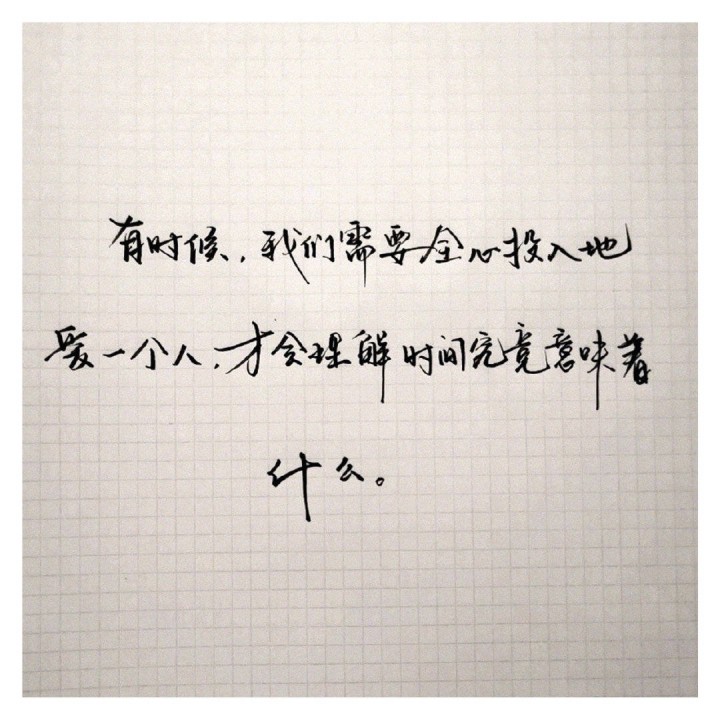 有时候，我们需要全心投入地
爱一个人，才会理解时间究竟意味着
什么。